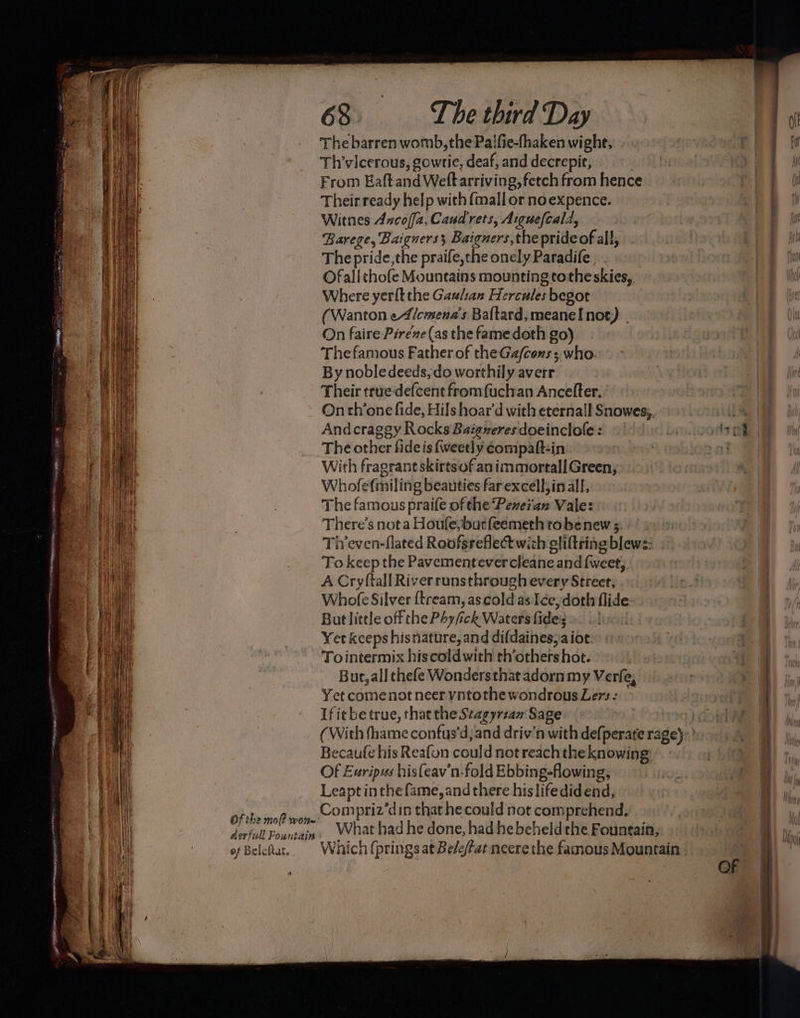 68 The third Day
The barren womb, the Palſie-ſhaken wight,
Th'vlcerous, gowtie, deaf, and decrepit,
From Eaſt and Weſt arriving, fetch from hence
Their ready help with ſmall or no expence.
Witnes Ancoſſa, Caud'rets, Aiguеſcald,
Barege, Baigners; Baigners, the pride of all,
The pride, the praiſe, the onely Paradiſe
Of all thoſe Mountains mounting to the skies,
Where yerſt the Gaulian Hercules begot
(Wanton Alcmena's Baſtard, meane I not)
On faire Piréne (as the fame doth go)
The famous Father of the Gaſcons; who
By noble deeds, do worthily averr
Their true deſcent from ſuch an Anceſter.
On th'one ſide, Hils hoar'd with eternall Snowes,
And craggy Rocks Baigneres doe incloſe:
The other ſide is ſweetly compaſt-in
With fragrant skirts of an immortall Green,
Whoſe ſmiling beauties far excell, in all,
The famous praiſe of the Peneian Vale:
There's not a Houſe, but ſeemeth to be new;
Th'even-ſlated Roofs reflect with gliſtring blews:
To keep the Pavement ever cleane and ſweet,
A Cryſtall River runs through every Street,
Whoſe Silver ſtream, as cold as Ice, doth ſlide
But little off the Phyſick Waters ſide;
Yet keeps his nature, and diſdaines, a iot
To intermix his cold with th'others hot.
But, all theſe Wonders that adorn my Verſe,
Yet come not neer vnto the wondrous Lers:
If it be true, that the Stagyrian Sage
(With ſhame confus'd, and driv'n with deſperate rage)
Becauſe his Reaſon could not reach the knowing
Of Euripus his ſeav'n-fold Ebbing-flowing,
Leapt in the ſame, and there his life did end,
Compriz'd in that he could not comprehend.
What had he done, had he beheld the Fountain,
Which ſprings at Beleſtat neere the famous Mountain
Of the moſt won-
derfull Fountain
of Beleſtat.
Of